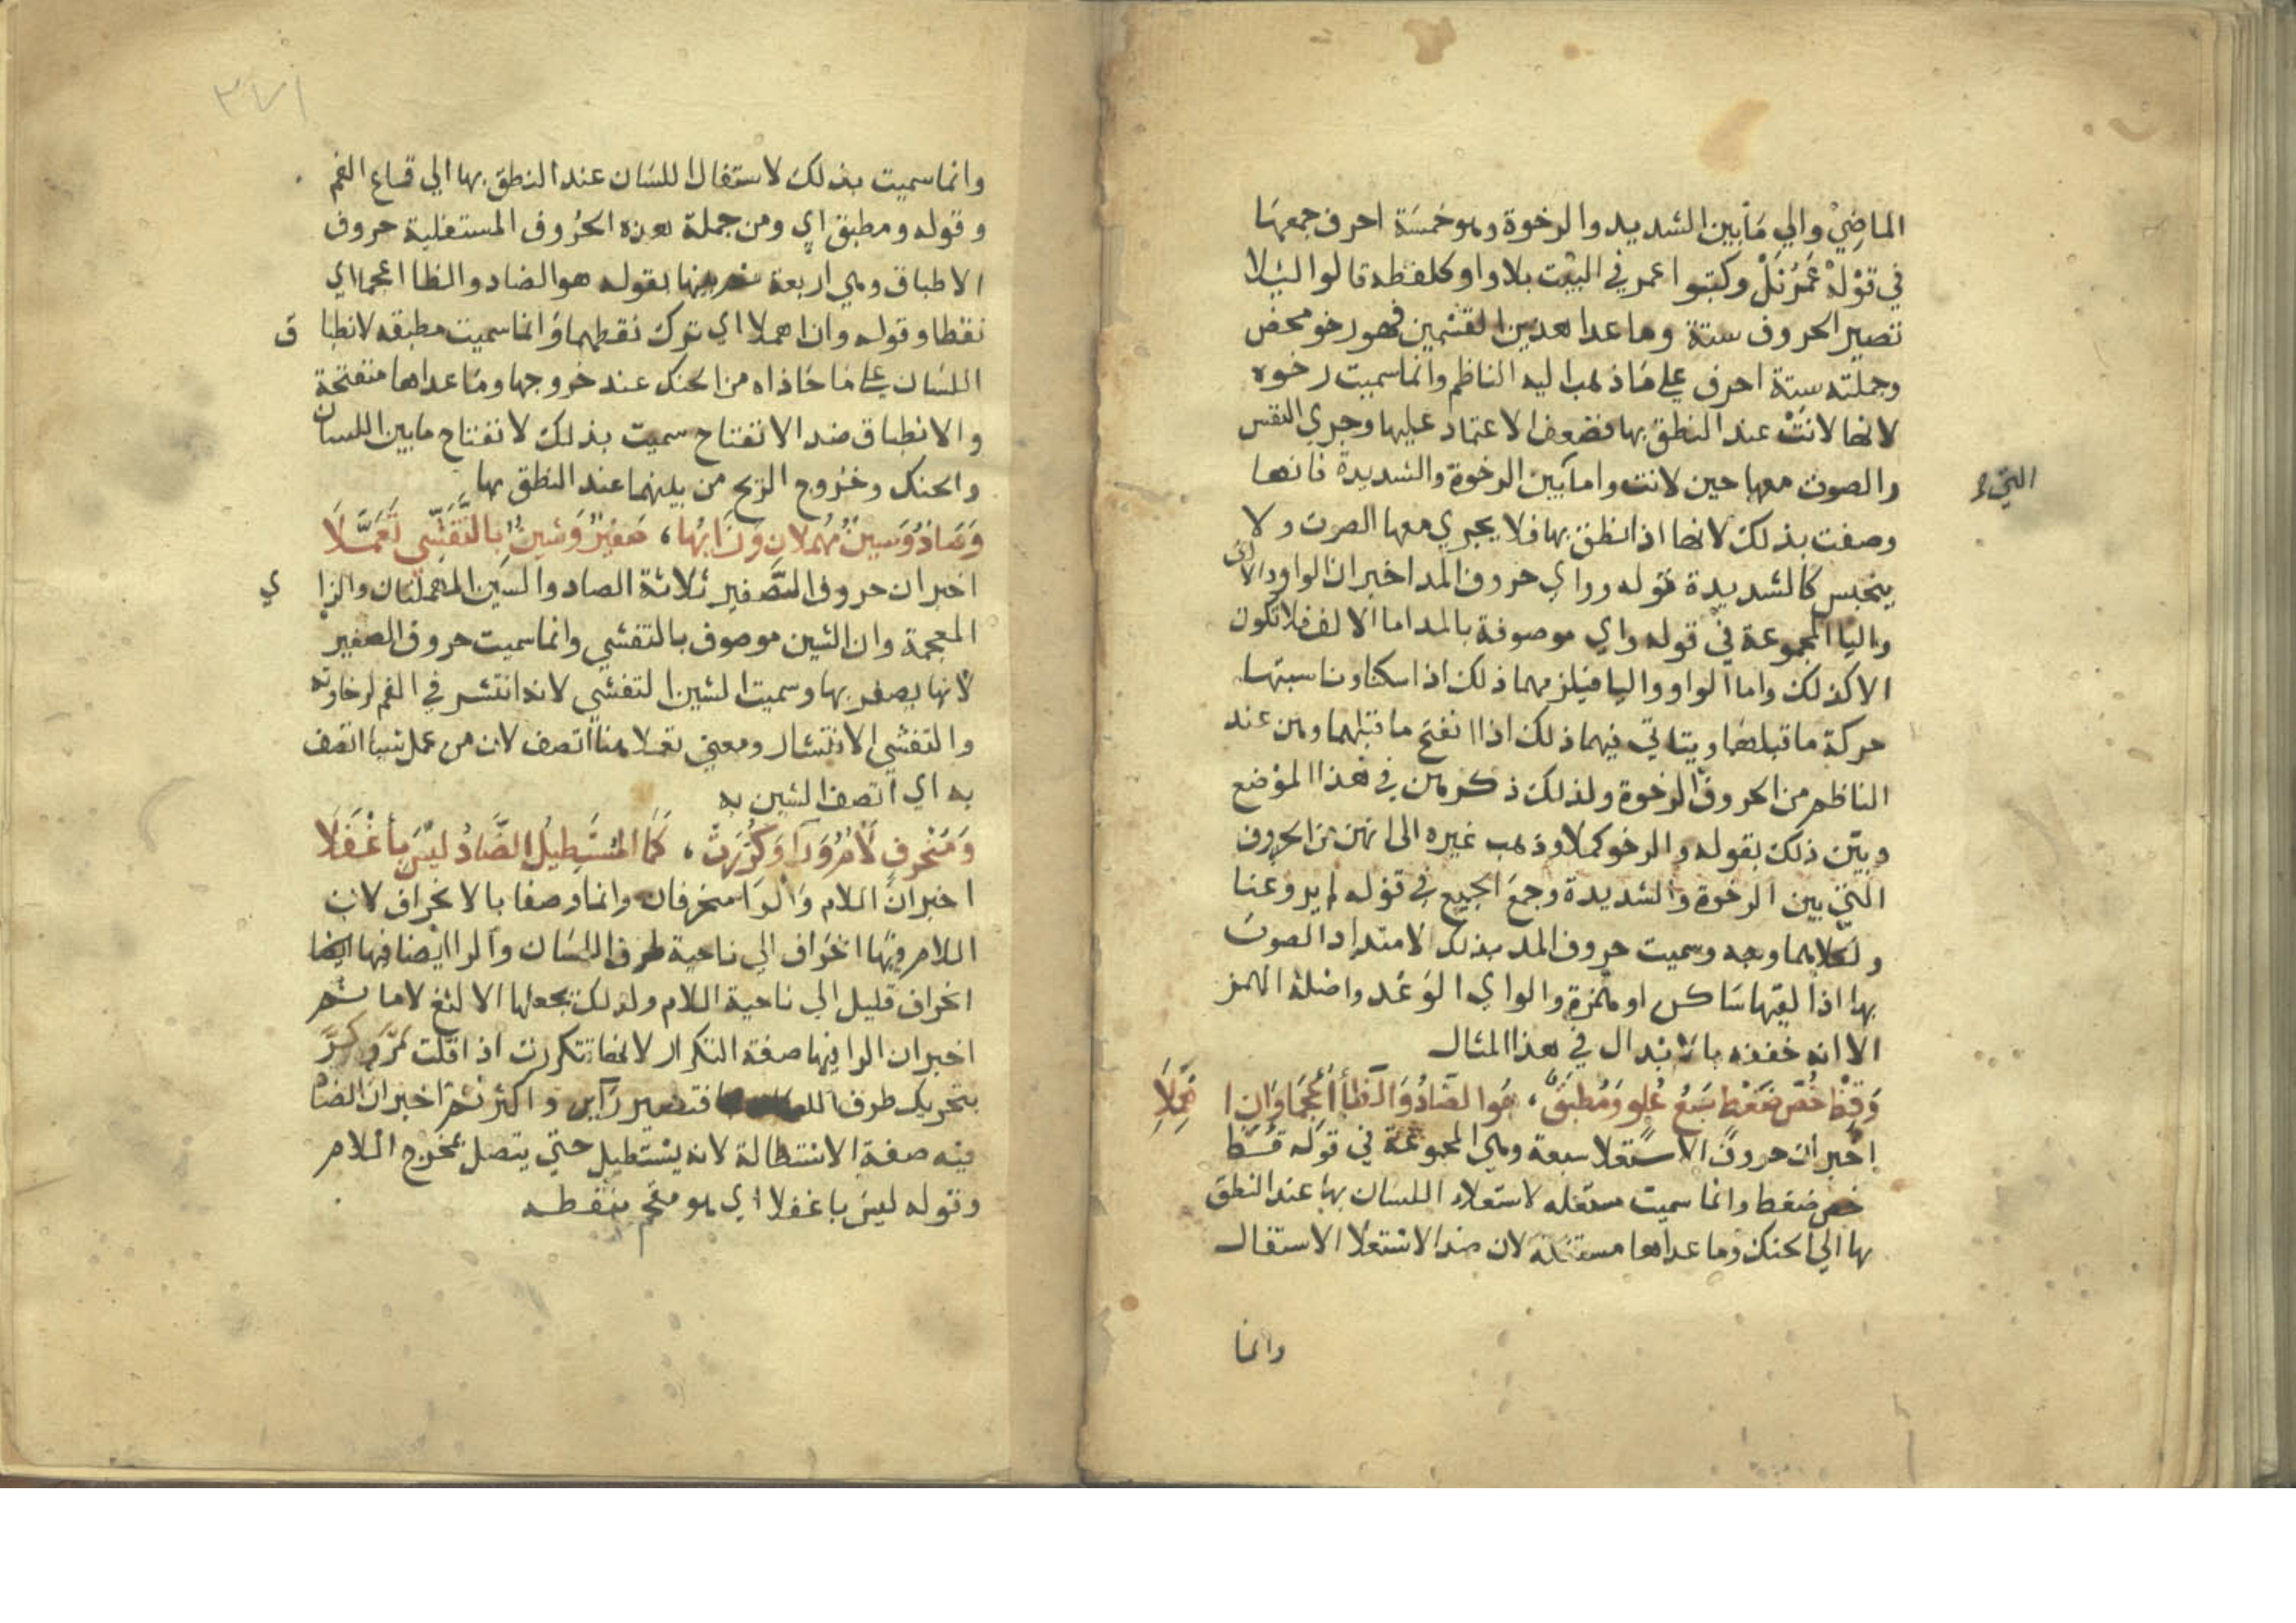 الماضي والي ما بين الشديد والرخوة وهو خمسة احرف جمعها
في قوله عَمْرُنَلْ وكتبوا عمر في البيت بلا واو كلفظه قالوا ليلا
تصير الحروف ستة وما عدا هذين القسمين فهو رخو محض
وجملته ستة احرف علي ما ذهب اليه الناظم وانما سميت رخوه
لانها لانت عند النطق بها فضعف الاعتماد عليها وجري النفس
والصوت معها حين لانت واما بين الرخوة والشديدة فانها
التي
وصفت بذلك لانها اذا نطق بها فلا يجري معها الصوت ولا
ينحبس كالشديدة قوله وواي حروف المد اخبر ان الواو والالف
واليا المجموعة في قوله واي موصوفة بالمد اما الالف فلا تكون
الا كذلك واما الواو واليا فيلزمهما ذلك اذا سكنا وناسبتهما
حركة ما قبلهما ويتاتي فيهما ذلك اذا انفتح ما قبلهما وهن عند
الناظم من الحروف الرخوة ولذلك ذكرهن في هذا الموضع
وبين ذلك بقوله والرخو كملا وذهب غيره الى انهن من الحروف
التي بين الرخوة والشديدة وجمع الجميع في قوله لم يروعنا
ولكلاهما وجه وسميت حروف المد بذلك لامتداد الصوت
بها اذا لقيها ساكن او همزة والواي الوعد واصله الهمز
الا انه خففه بالابدال في هذا المثال
وَقِظْ خُصَّ ضَغْطٍ سَبْعُ عُلْوٍ وَمُطْبَقٌ، هُوَ الضَّادُ وَالظَّا أُعْجِمَا وَانِ اهْمِلَا
اخبر ان حروف الاستعلا سبعة وهي المجموعة في قوله قظ
خص ضغط وانما سميت مستعليه لاستعلاء اللسان بها عند النطق
بها الي الحنك وما عداها مستفلة لان ضد الاستعلا الاستفال
وانما
٣٧١
وانما سميت بذلك لاستفال اللسان عند النطق بها الي قاع الفم
وقوله ومطبق اي ومن جملة هذه الحروف المستعلية حروف
الاطباق وهي اربعة بقوله هو الضاد والظا اعجما اي
نقطا وقوله وان اهملا اي ترك نقطهما وانما سميت مطبقه لانطبا ق
اللسان علي ما حاذاه من الحنك عند خروجها وما عداها منفتحة
والانطباق ضد الانفتاح سميت بذلك لانفتاح ما بين اللسان
والحنك وخروج الريح من بينهما عند النطق بها
وَصَادٌ وَسِينٌ مُهْمَلَانِ وَزَايُهَا، صَفِيرٌ وَشِينٌ بِالتَّفَشِّي تَعَمَّلَا
اخبر ان حروف التصفير ثلاثة الصاد والسين المهملتان والزا ي
المعجمة وان الشين موصوف بالتفشي وانما سميت حروف الصفير
لانها يصفر بها وسميت الشين التفشي لانه انتشر في الفم لرخاوته
والتفشي الانتشار ومعني تعملا هنا اتصف لان من عمل شيا اتصف
به اي اتصف الشين به
وَمُنْحَرِفٍ لَامٌ وَرَا وَكُرِّرَتْ، كَمَا الْمُسْتَطِيلُ الضَّادُ لَيْسَ بِأَغْفَلَا
اخبر ان اللام والرا منحرفان وانما وصفا بالانحراف لان
اللام فيها انحراف الي ناحية طرف اللسان والرا ايضا فيها ايضا
انحراف قليل الي ناحية اللام ولذلك يجعلها الالثغ لاما ثم
اخبر ان الرا فيها صفة التكرار لانها تتكررت اذا قلت مرّ وكرّ
بتحريك طرف فتصير رآين واكثر ثم اخبر ان الضا
فيه صفة الاستطالة لانه يستطيل حتي يتصل بمخرج اللام
وقوله ليس باغفلا اي هو معجم بنقطه